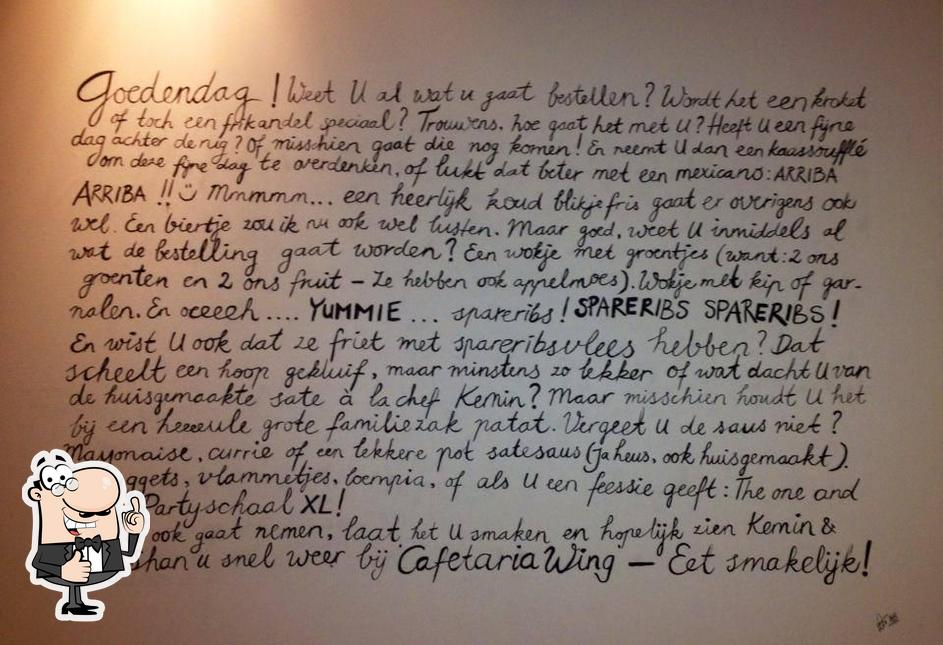 Goedendag! Weet U al wat u gaat bestellen? Wordt het een kroket
of toch een frikandel speciaal? Trouwens, hoe gaat het met U? Heeft U een fijne
dag achter de rug? Of misschien gaat die nog komen! En neemt U dan een kaassoufflé
om deze fijne dag te overdenken, of lukt dat beter met een mexicano: ARRIBA
ARRIBA !! Mmmmm... een heerlijk koud blikje fris gaat er overigens ook
wel. Een biertje zou ik nu ook wel lusten. Maar goed, weet U inmiddels al
wat de bestelling gaat worden? Een wokje met groentjes (want: 2 ons
groenten en 2 ons fruit – Ze hebben ook appelmoes). Wokje met kip of gar-
nalen. En oeeeeh.... YUMMIE ... spareribs! SPARERIBS SPARERIBS!
En wist U ook dat ze friet met spareribsvlees hebben? Dat
scheelt een hoop gekluif, maar minstens zo lekker of wat dacht U van
de huisgemaakte sate à la chef Kemin? Maar misschien houdt U het
bij een heeeeule grote familiezak patat. Vergeet U de saus niet?
Mayonaise, currie of een lekkere pot satesaus (ja heus, ook huisgemaakt).
ggets, vlammetjes, loempia, of als U een feessie geeft: The one and
Partyschaal XL!
ook gaat nemen, laat het U smaken en hopelijk zien Kemin &
shan u snel weer bij Cafetaria Wing – Eet smakelijk!